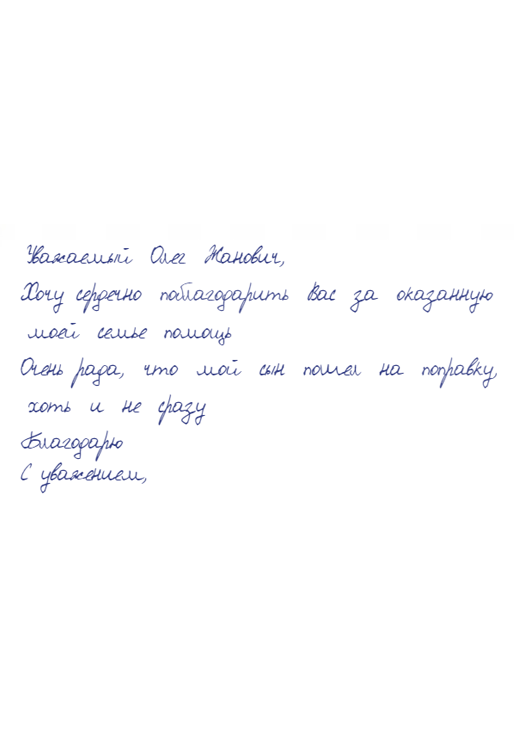 Уважаемый Олег Жанович,
Хочу сердечно поблагодарить Вас за оказанную
моей семье помощь
Очень рада, что мой сын пошел на поправку,
хоть и не сразу
Благодарю
С уважением,